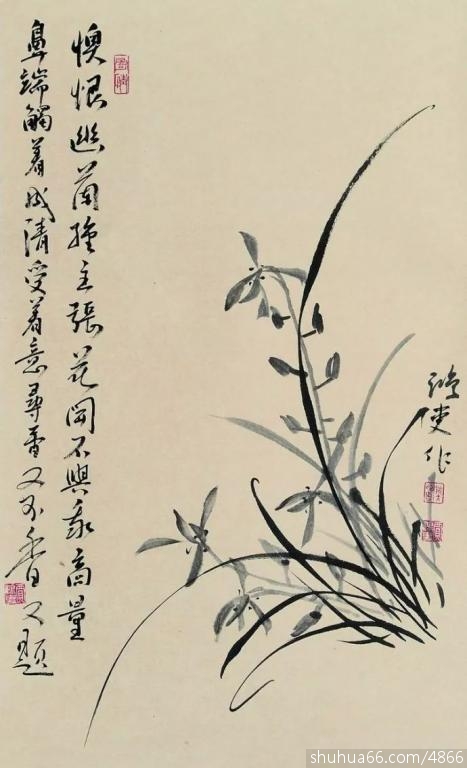 懊恨幽蘭强主張花開不與我商量
鼻端觸着成清受着意尋香又不香又題
使作
shuhua66.com/4866